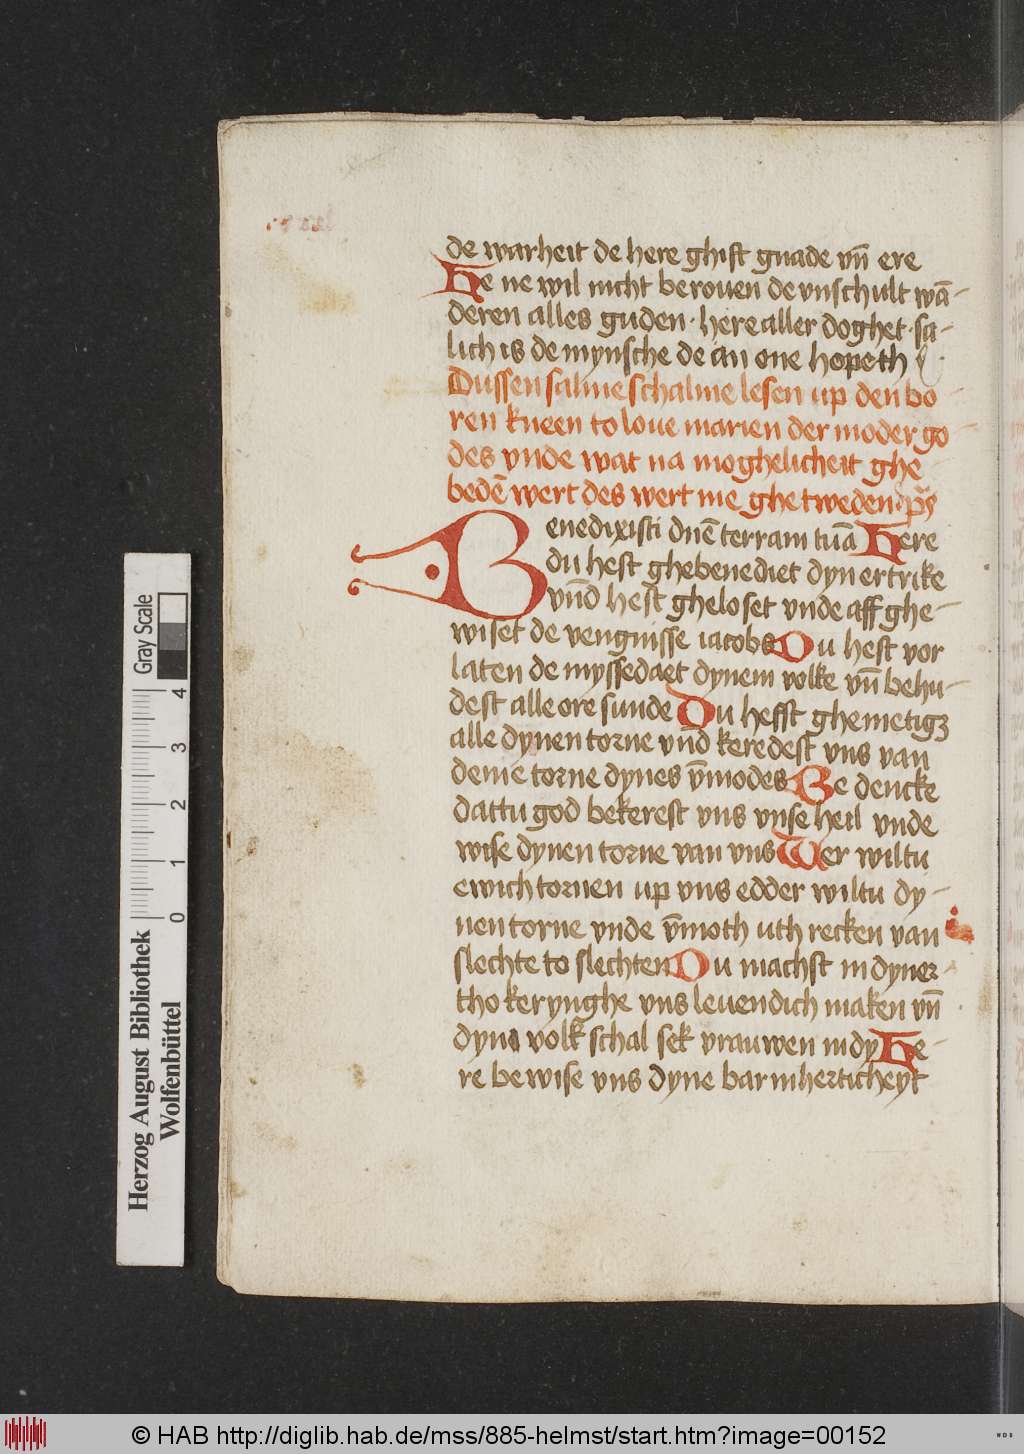 de warheit de here ghift gnade vn̄ ere
He ne wil nicht berouen de vnschult wā-
deren alles guden · here aller doghet · sa-
lich is de mynsche de an one hopeth
Dussen salme schalme lesen up den bo
ren kneen to loue marien der moder go
des vnde wat na moghelicheit ghe
bedē wert des wert me ghetweden · p̄s
Benedixisti dnē terram tuā Here
du hest ghebenediet dyn ertrike
vn̄d hest gheloset vnde aff ghe-
wiset de vengnisse iacobs Du hest vor
laten de myssedaet dynem volke vn̄ behu-
dest alle ore sunde Du hefft ghemetigꝫ
alle dynen torne vnd keredest vns van
deme torne dynes v̄modes Be dencke
dattu god bekerest vns vnse heil vnde
wise dynen torne van vns Wer wiltu
ewich tornen up vns edder wiltu dy-
nen torne vnde v̄moth uth recken van
slechte to slechten Du machst in dyner
tho kerynghe vns leuendich maken vn̄
dyne volk schal sek vrauwen in dy He-
re bewise vns dyne barmherticheyt
Gray Scale
0 1 2 3 4
Herzog August Bibliothek
Wolfenbüttel
© HAB http://diglib.hab.de/mss/885-helmst/start.htm?image=00152